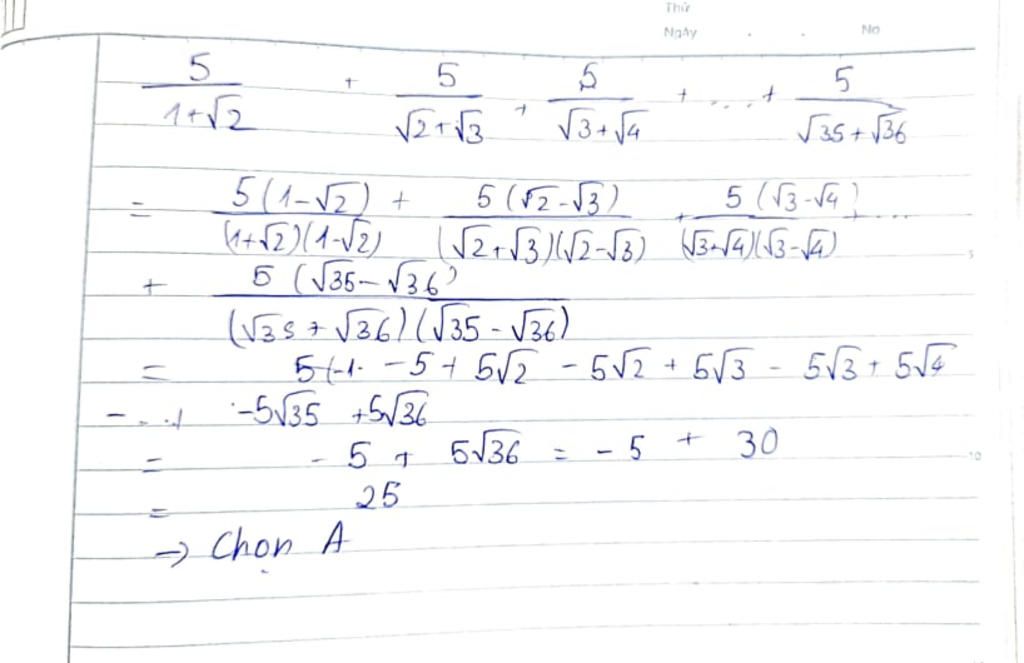 Thứ
Ngày . . No
5/(1+√2) + 5/(√2+√3) + 5/(√3+√4) + ... + 5/(√35+√36)
= 5(1-√2)/((1+√2)(1-√2)) + 5(√2-√3)/((√2+√3)(√2-√3)) + 5(√3-√4)/((√3+√4)(√3-√4)) + ...
+ 5(√35-√36)/((√35+√36)(√35-√36))
= -5+5√2 -5√2+5√3 -5√3+5√4
- ... -5√35 +5√36
= -5 + 5√36 = -5 + 30
= 25
→ Chọn A
5
10